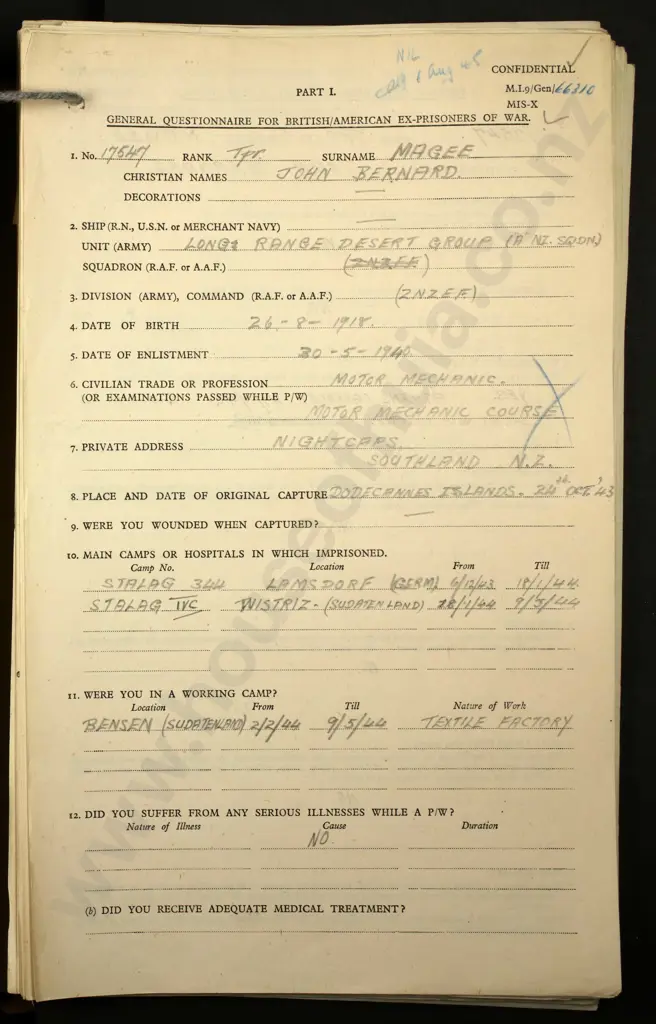 NIL
6 Aug 45
CONFIDENTIAL
PART I.
M.I.9/Gen/66310
MIS-X
GENERAL QUESTIONNAIRE FOR BRITISH/AMERICAN EX-PRISONERS OF WAR.
1. No. 17547 RANK Tpr. SURNAME MAGEE
CHRISTIAN NAMES JOHN BERNARD.
DECORATIONS —
2. SHIP (R.N., U.S.N. or MERCHANT NAVY) —
UNIT (ARMY) LONG RANGE DESERT GROUP (A NZ. SQDN)
SQUADRON (R.A.F. or A.A.F.) (2.N.Z.E.F.)
3. DIVISION (ARMY), COMMAND (R.A.F. or A.A.F.) (2.N.Z.E.F.)
4. DATE OF BIRTH 26-8-1918.
5. DATE OF ENLISTMENT 30-5-1940.
6. CIVILIAN TRADE OR PROFESSION MOTOR MECHANIC.
(OR EXAMINATIONS PASSED WHILE P/W)
MOTOR MECHANIC COURSE
7. PRIVATE ADDRESS NIGHTCAPS
SOUTHLAND N.Z.
8. PLACE AND DATE OF ORIGINAL CAPTURE DODECANNES ISLANDS. 24th OCT '43
9. WERE YOU WOUNDED WHEN CAPTURED? —
10. MAIN CAMPS OR HOSPITALS IN WHICH IMPRISONED.
Camp No. Location From Till
STALAG 344 LAMSDORF (GERM) 6/12/43 18/1/44.
STALAG IVC WISTRIZ- (SUDATENLAND) 18/1/44 9/5/44
11. WERE YOU IN A WORKING CAMP?
Location From Till Nature of Work
BENSEN (SUDATENLAND) 2/2/44 9/5/44 TEXTILE FACTORY
12. DID YOU SUFFER FROM ANY SERIOUS ILLNESSES WHILE A P/W?
Nature of Illness Cause Duration
NO.
(b) DID YOU RECEIVE ADEQUATE MEDICAL TREATMENT?
www.houseofnulia.co.nz